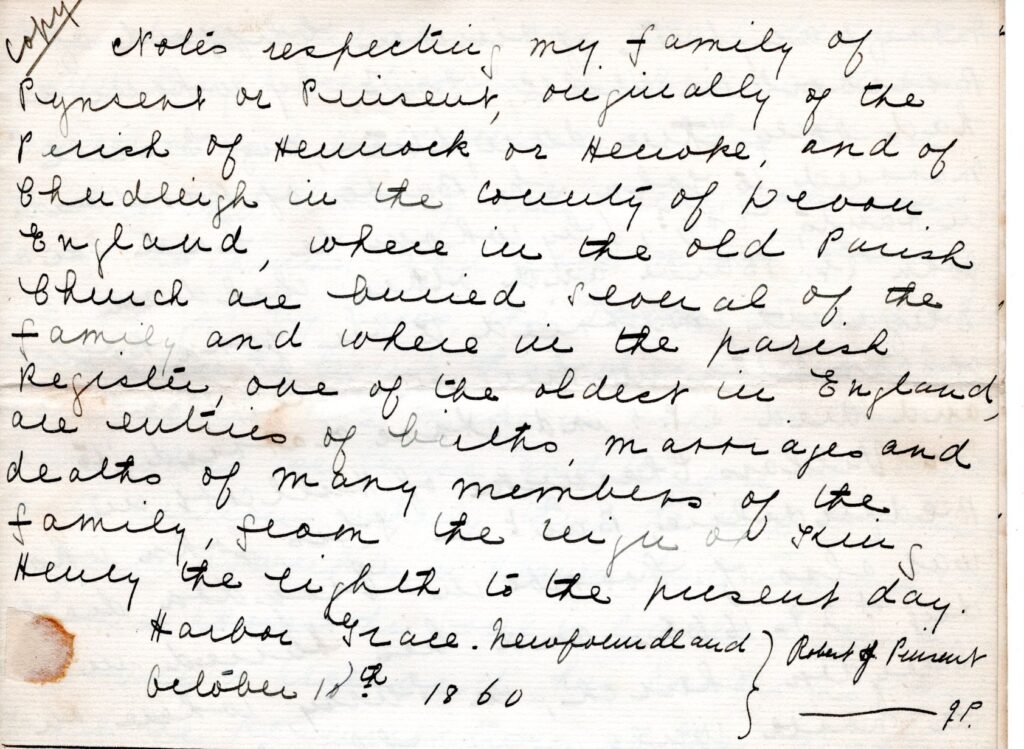 Copy
Notes respecting my family of
Pynsent or Pinsent, originally of the
Parish of Hennock or Henoke, and of
Chudleigh in the County of Devon
England, where in the old Parish
Church are buried several of the
family and where in the parish
Register, one of the oldest in England,
are entries of births, marriages and
deaths of many members of the
family, from the reign of King
Henry the eighth to the present day.
Harbor Grace. Newfoundland
October th 1860
Robert Pinsent
J.P.